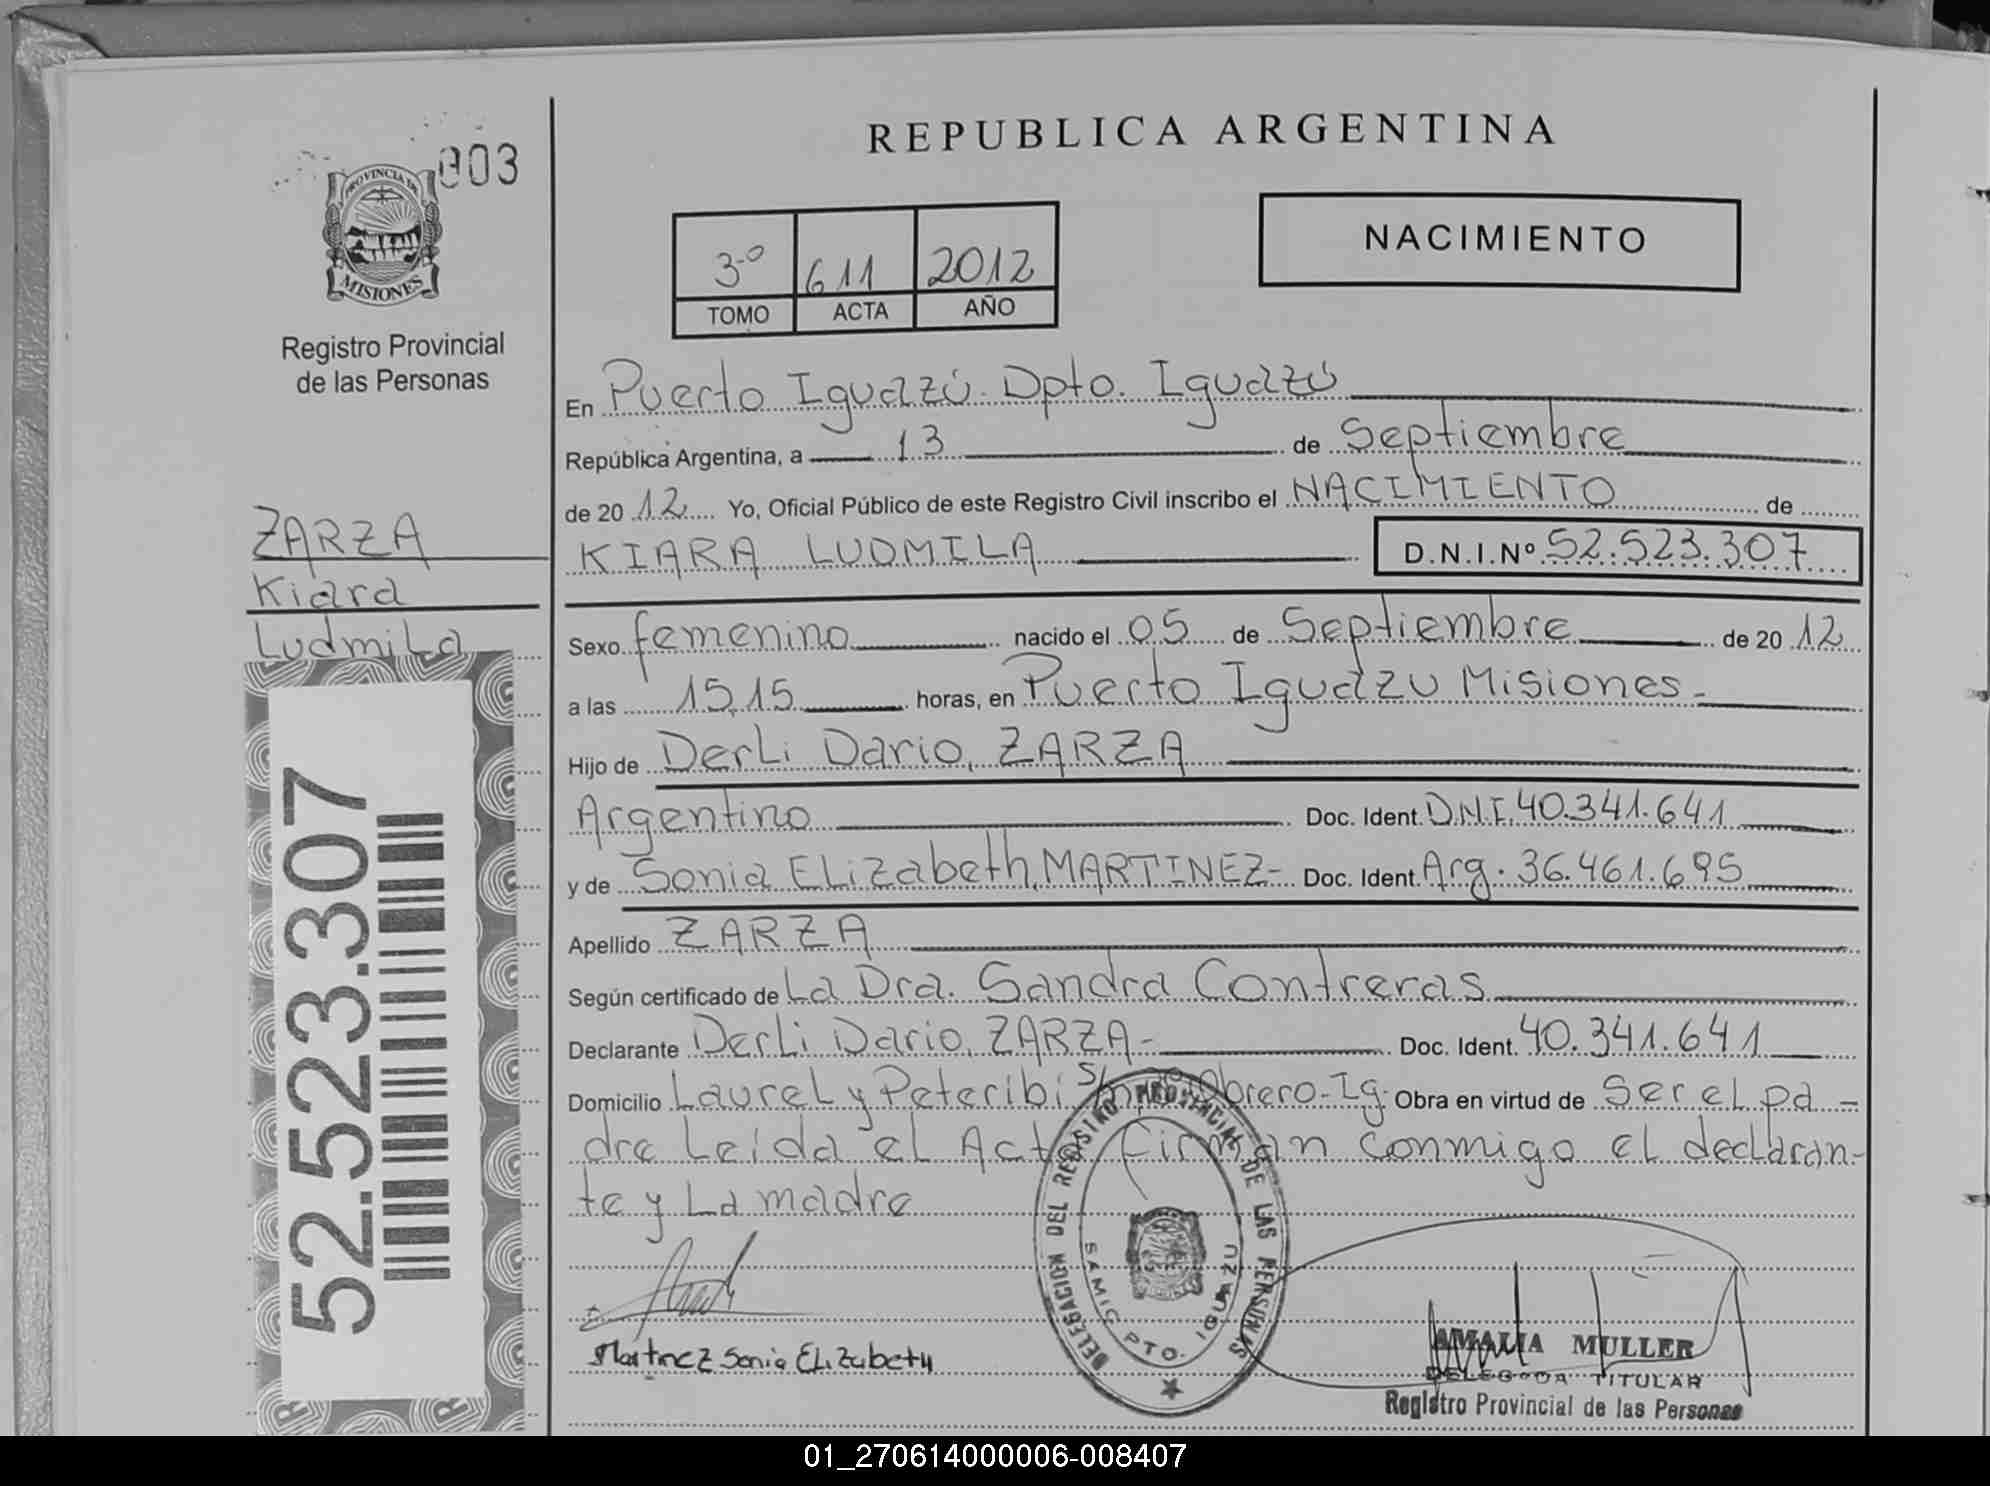 REPUBLICA ARGENTINA
003
PROVINCIA DE
MISIONES
Registro Provincial
de las Personas
NACIMIENTO
3º 611 2012
TOMO ACTA AÑO
En Puerto Iguazú. Dpto. Iguazú
República Argentina, a 13 de Septiembre
de 2012 Yo, Oficial Público de este Registro Civil inscribo el NACIMIENTO de
KIARA LUDMILA D.N.I.Nº 52.523.307
ZARZA
Kiara
Ludmila
Sexo femenino nacido el 05 de Septiembre de 2012
a las 15,15 horas, en Puerto Iguazu Misiones-
Hijo de Derli Dario, ZARZA
Argentino Doc. Ident. D.N.I. 40.341.641
y de Sonia Elizabeth, MARTINEZ- Doc. Ident. Arg. 36.461.695
Apellido ZARZA
Según certificado de La Dra. Sandra Contreras
Declarante Derli Dario, ZARZA- Doc. Ident. 40.341.641
Domicilio Laurel y Peteribi s/n Obrero-Ig. Obra en virtud de Ser el pa-
dre Leida el Acta firman conmigo el declaran-
te y La madre
52.523.307
Martinez Sonia Elizabeth
DELEGACION DEL REGISTRO PROVINCIAL DE LAS PERSONAS
SAMIC PTO. IGUAZU
AMALIA MULLER
DELEGADA TITULAR
Registro Provincial de las Personas
01_270614000006-008407